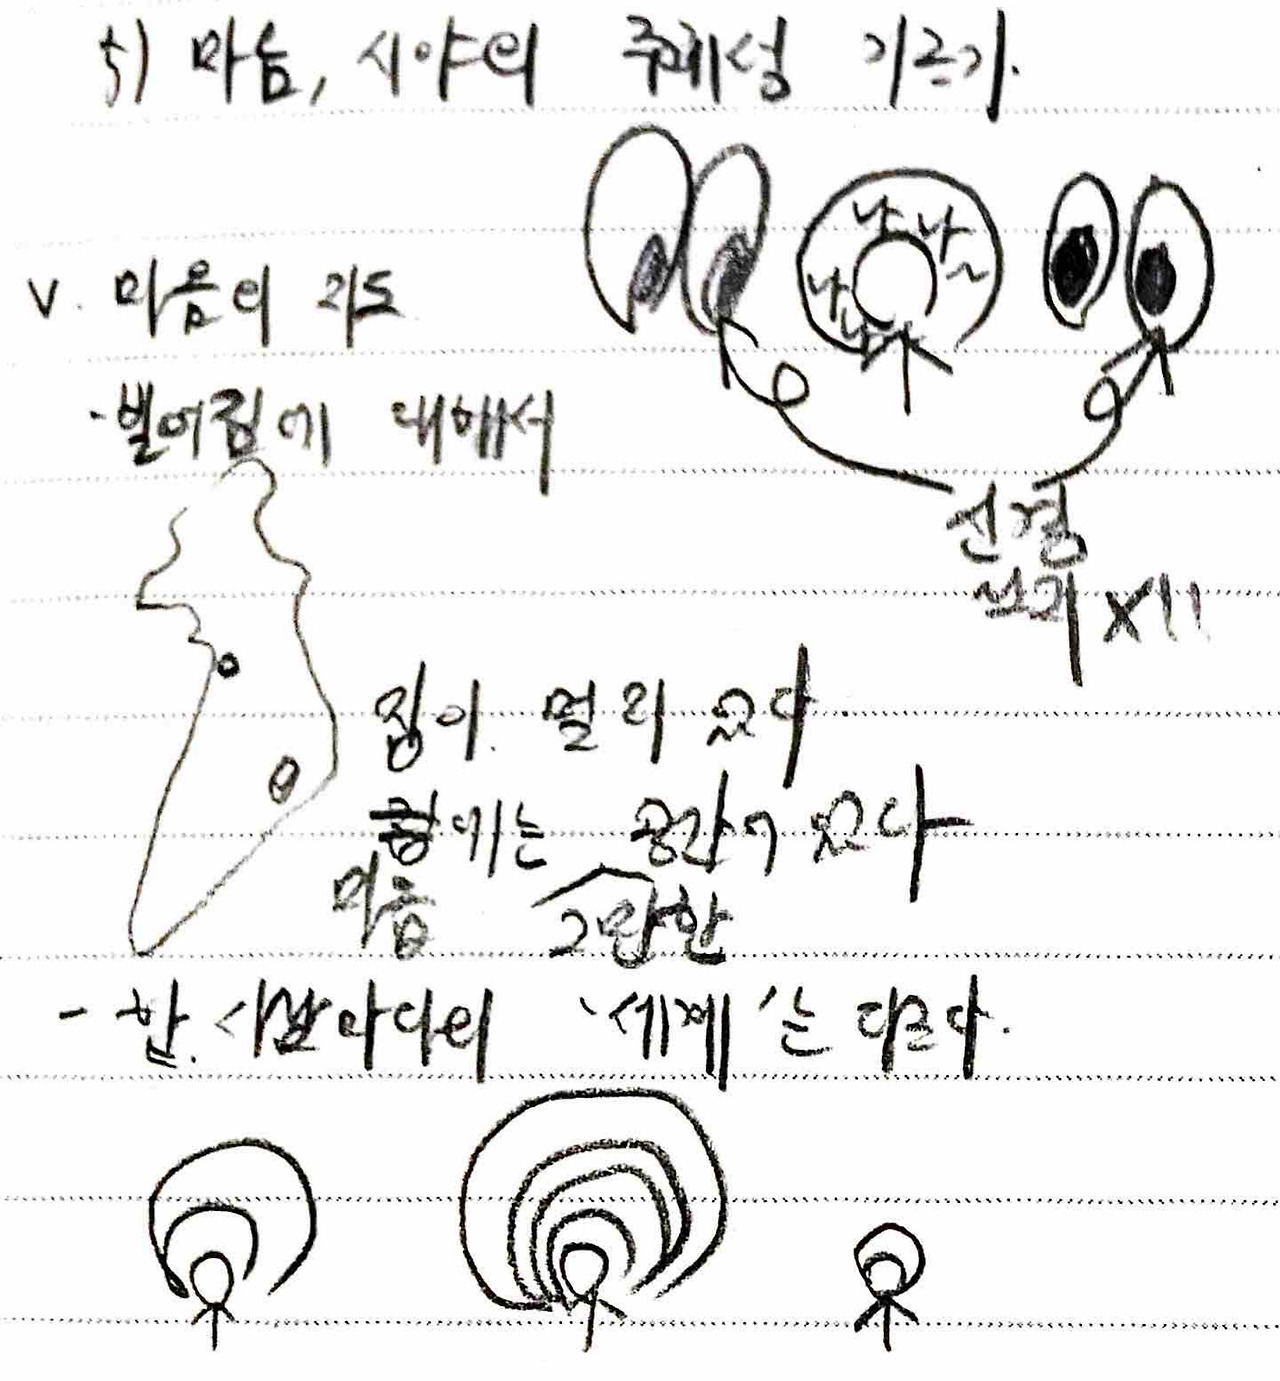 5) 마음, 시야의 주체성 기르기.
나 나~
나
나
v. 마음의 지도
- 벌어짐에 대해서
신경
쓰기 X!!
짐이 멀리 있다.
에는 공간이 있다
마음 그만한
- 한 사람마다의 '세계'는 다르다.